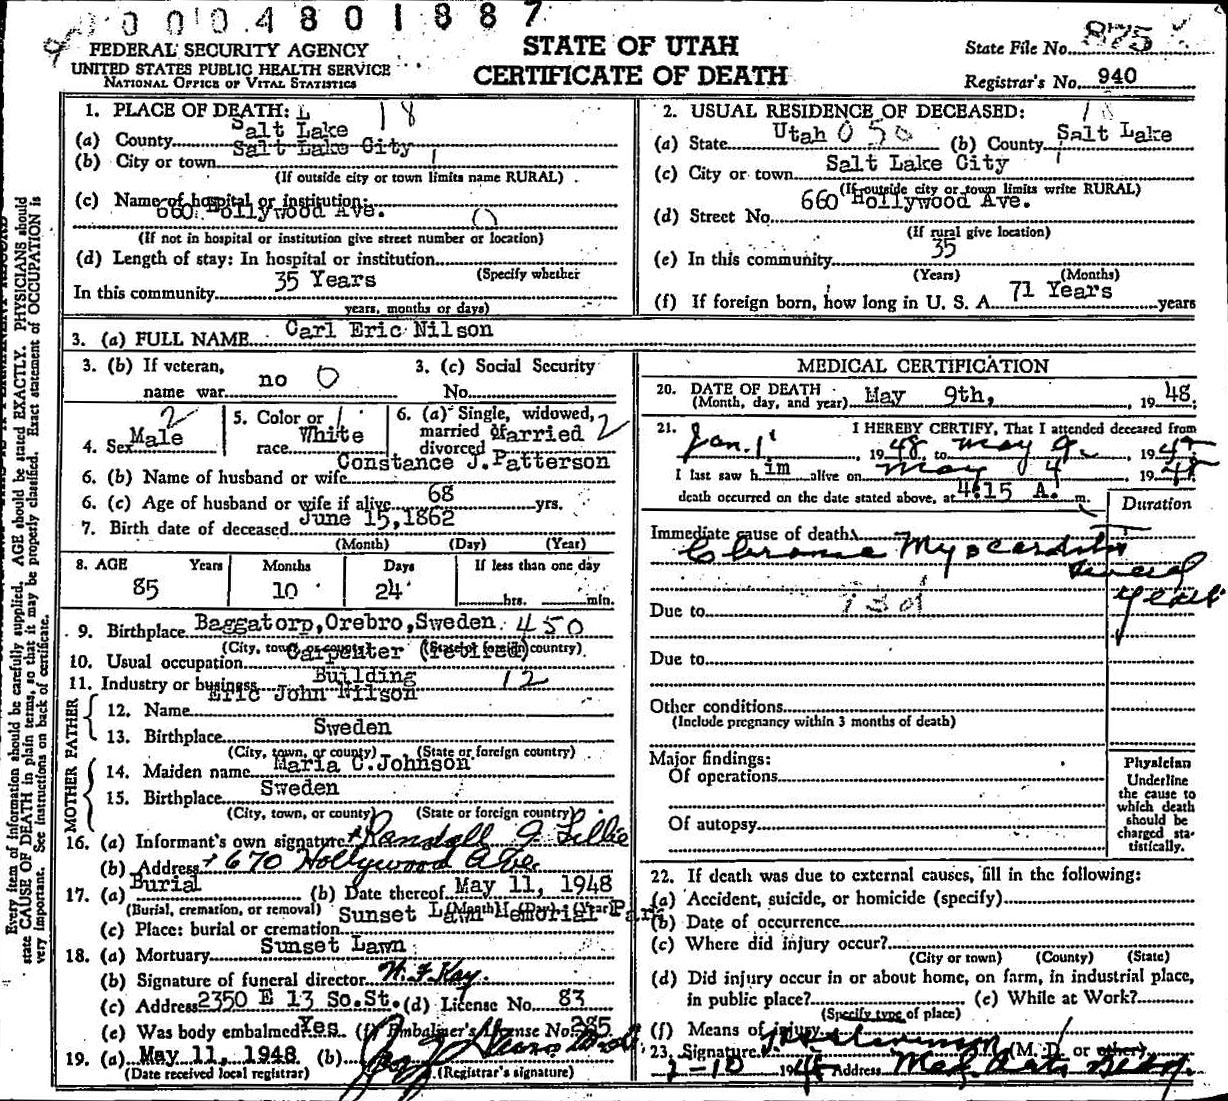 0 0 0 4 8 0 1 8 8 7
FEDERAL SECURITY AGENCY
UNITED STATES PUBLIC HEALTH SERVICE
NATIONAL OFFICE OF VITAL STATISTICS
STATE OF UTAH
CERTIFICATE OF DEATH
State File No. 875
Registrar's No. 940
1. PLACE OF DEATH: 18
(a) County Salt Lake
(b) City or town Salt Lake City
(If outside city or town limits name RURAL)
(c) Name of hospital or institution:
660 Hollywood Ave. 0
(If not in hospital or institution give street number or location)
(d) Length of stay: In hospital or institution
(Specify whether
In this community 35 Years
years, months or days)
2. USUAL RESIDENCE OF DECEASED: 18
(a) State Utah 050 (b) County Salt Lake
(c) City or town Salt Lake City
(If outside city or town limits write RURAL)
(d) Street No. 660 Hollywood Ave.
(If rural give location)
(e) In this community 35
(Years) (Months)
(f) If foreign born, how long in U. S. A. 71 Years years
3. (a) FULL NAME Carl Eric Nilson
3. (b) If veteran, name war no 0
3. (c) Social Security No.
4. Sex Male 2
5. Color or race White 1
6. (a) Single, widowed, married divorced Married 2
6. (b) Name of husband or wife Constance J. Patterson
6. (c) Age of husband or wife if alive 68 yrs.
7. Birth date of deceased June 15, 1862
(Month) (Day) (Year)
8. AGE Years Months Days If less than one day
85 10 24 hrs. min.
9. Birthplace Baggatorp, Orebro, Sweden. 450
(City, town, or county) (State or foreign country)
10. Usual occupation Carpenter (retired)
11. Industry or business Building 12
FATHER
12. Name Eric John Nilson
13. Birthplace Sweden
(City, town, or county) (State or foreign country)
MOTHER
14. Maiden name Maria C. Johnson
15. Birthplace Sweden
(City, town, or county) (State or foreign country)
16. (a) Informant's own signature Randall J Lillie
(b) Address 670 Hollywood Ave
17. (a) Burial (b) Date thereof May 11, 1948
(Burial, cremation, or removal) (Month) (Day) (Year)
(c) Place: burial or cremation Sunset Lawn Memorial Park
18. (a) Mortuary Sunset Lawn
(b) Signature of funeral director W. F. Kay.
(c) Address 2350 E 13 So. St. (d) License No. 83
(e) Was body embalmed? Yes (f) Embalmer's License No. 285
19. (a) May 11, 1948 (b)
(Date received local registrar) (Registrar's signature)
MEDICAL CERTIFICATION
20. DATE OF DEATH (Month, day, and year) May 9th, 1948.
21. I HEREBY CERTIFY, That I attended deceased from
Jan. 1, 1948, to May 9, 1948
I last saw him alive on May 4 1948
death occurred on the date stated above, at 4:15 A. m.
Duration
Immediate cause of death
Chronic Myocarditis
several years
Due to
Due to
Other conditions
(Include pregnancy within 3 months of death)
Major findings:
Of operations
Of autopsy
Physician
Underline the cause to which death should be charged statistically.
22. If death was due to external causes, fill in the following:
(a) Accident, suicide, or homicide (specify)
(b) Date of occurrence
(c) Where did injury occur?
(City or town) (County) (State)
(d) Did injury occur in or about home, on farm, in industrial place,
in public place? (e) While at Work?
(Specify type of place)
(f) Means of injury
23. Signature (M. D. or other)
1948 Address Med. Arts Bldg.
Every item of information should be carefully supplied. AGE should be stated EXACTLY. PHYSICIANS should
state CAUSE OF DEATH in plain terms, so that it may be properly classified. Exact statement of OCCUPATION is
very important. See instructions on back of certificate.